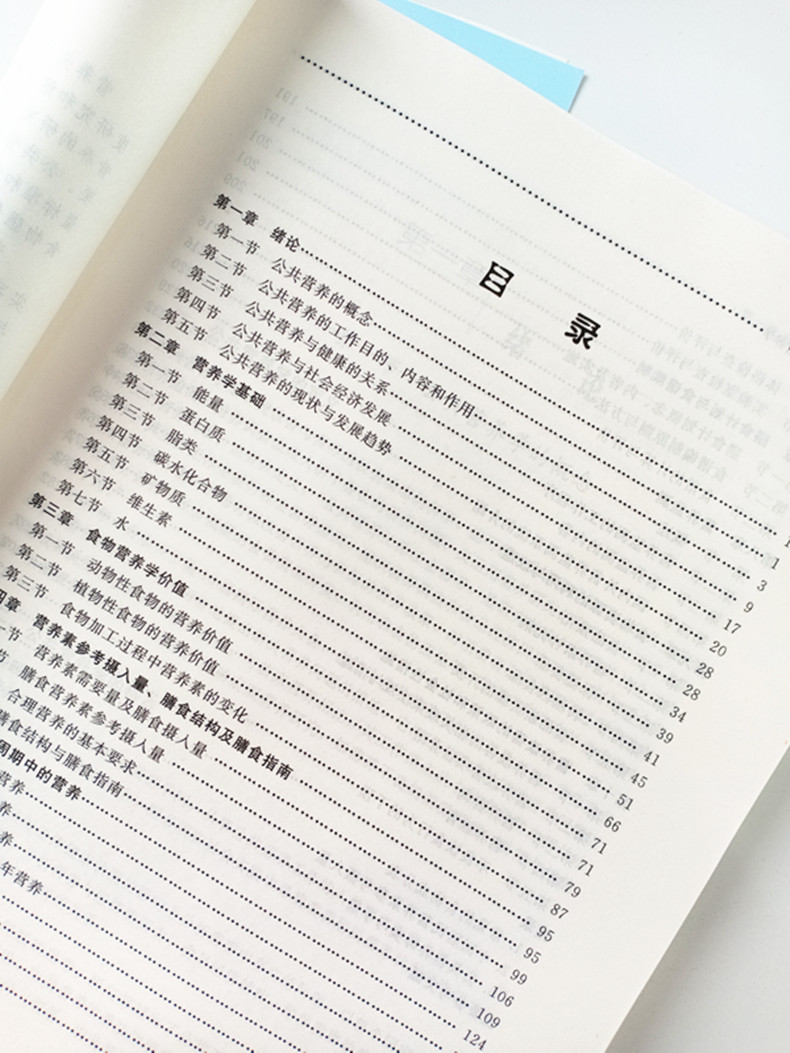 目 录
第一章 绪论……1
第一节 公共营养的概念……1
第二节 公共营养的工作目的、内容和作用……3
第三节 公共营养与健康的关系……9
第四节 公共营养与社会经济发展……17
第五节 公共营养的现状与发展趋势……20
第二章 营养学基础……28
第一节 能量……28
第二节 蛋白质……34
第三节 脂类……39
第四节 碳水化合物……41
第五节 矿物质……45
第六节 维生素……51
第七节 水……66
第三章 食物营养学价值……71
第一节 动物性食物的营养价值……71
第二节 植物性食物的营养价值……79
第三节 食物加工过程中营养素的变化……87
四章 营养素参考摄入量、膳食结构及膳食指南……95
一节 营养素需要量及膳食摄入量……95
节 膳食营养素参考摄入量……99
合理营养的基本要求……106
膳食结构与膳食指南……109
周期中的营养……124
营养……
养……
养……
年营养……